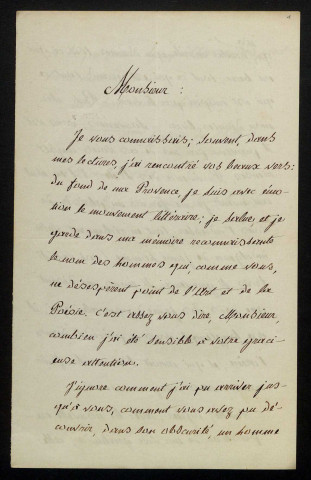 Monsieur :
Je vous connaissais ; souvent, dans
mes lectures, j'ai rencontré vos beaux vers :
du fond de ma Provence, je suis avec émo-
tion le mouvement littéraire ; je et je
garde dans ma mémoire reconnaissante
le nom des hommes qui, comme vous,
ne désespèrent point de l'Art et de la
Poésie. C'est assez vous dire, Monsieur,
combien j'ai été sensible à votre graci-
euse attention.
J'ignore comment j'ai pu arriver jus-
qu'à vous, comment vous avez pu dé-
couvrir, dans son obscurité, un homme